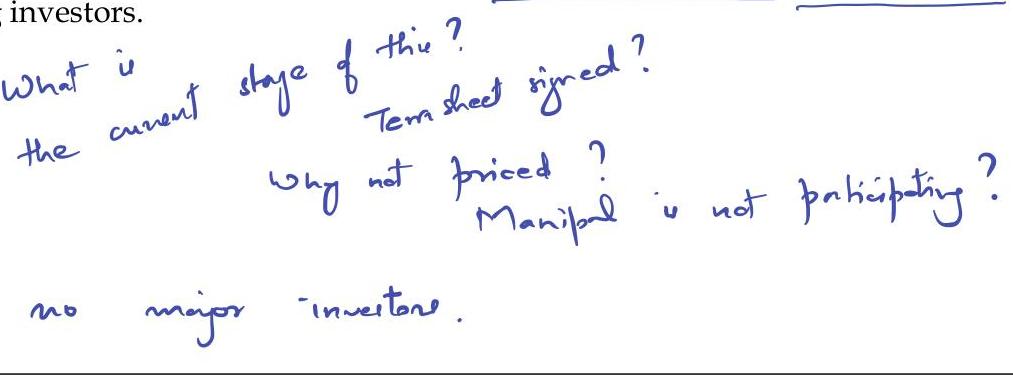 investors.
What is
the current stage of this?
Term sheet signed?
Why not priced?
Manipal is not participating?
no major investors.